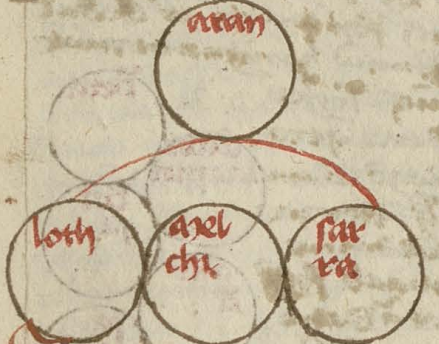 aran
loth
mel
cha
sar
ra